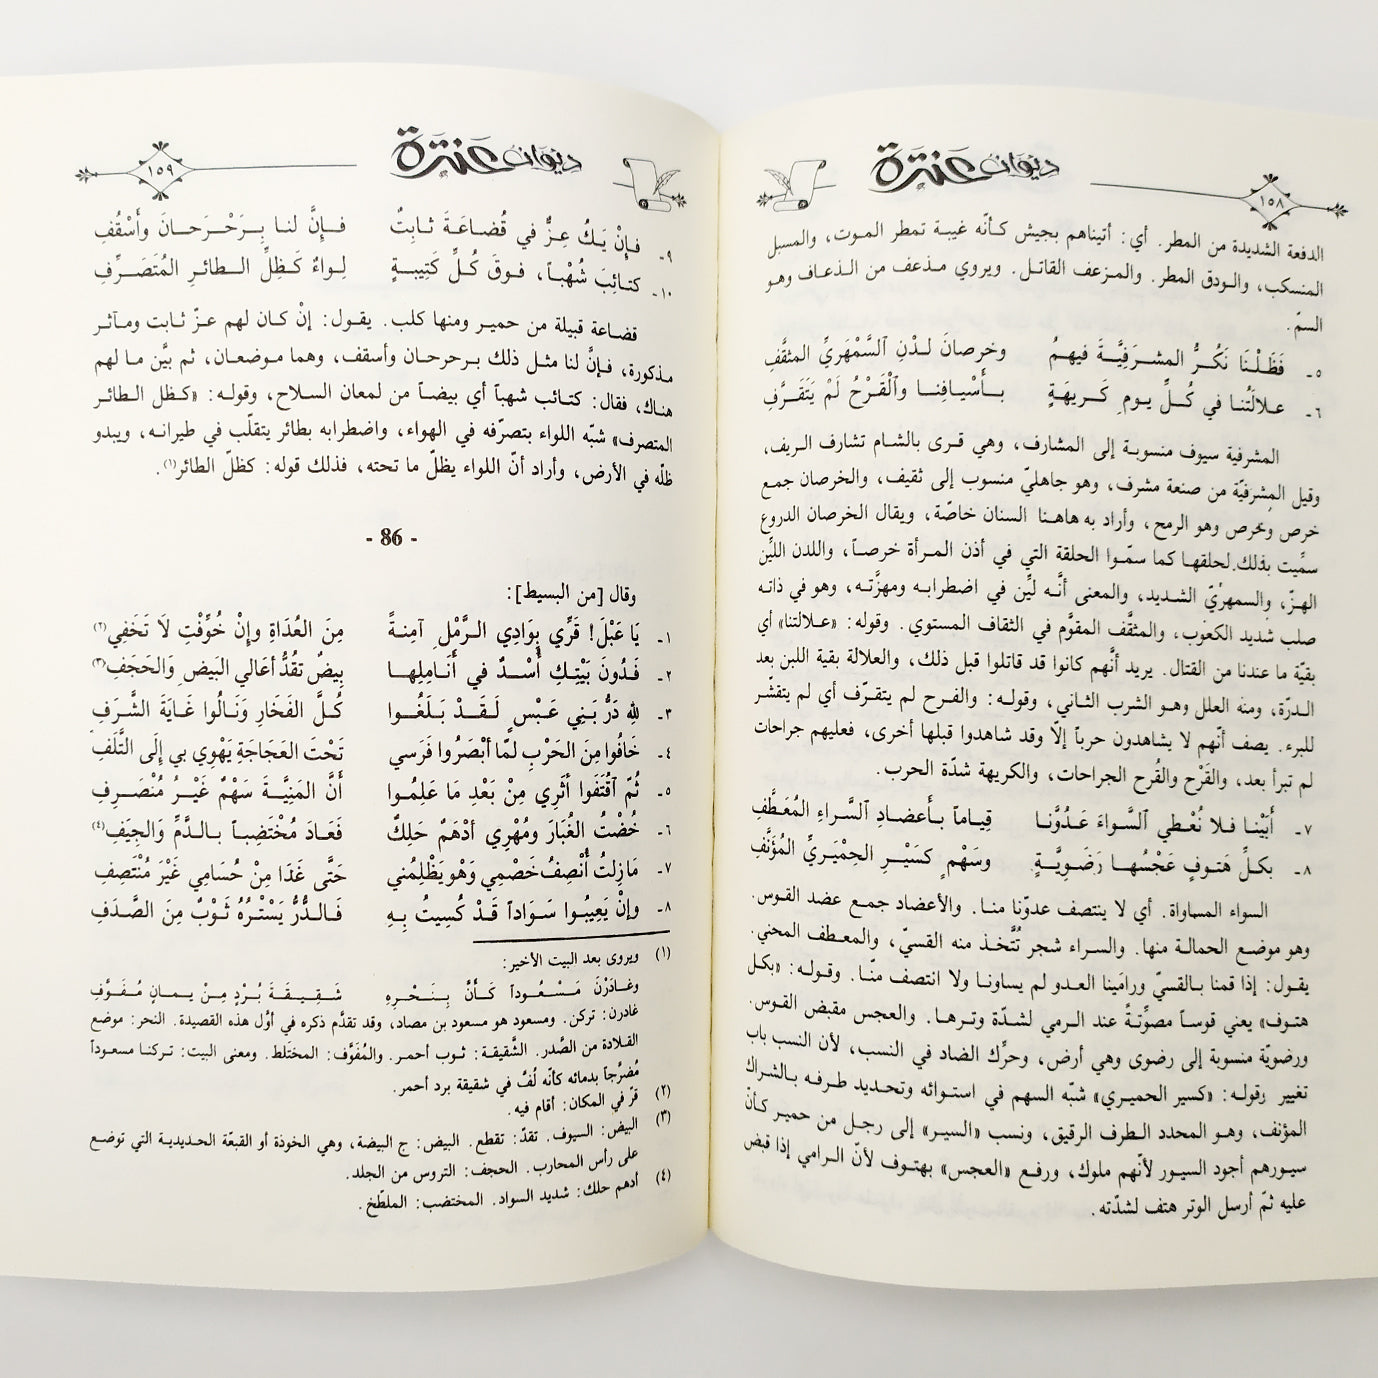 ديوان عنترة
١٥٨
الدفعة الشديدة من المطر. أي: أتيناهم بجيش كأنّه غيبة تمطر الموت، والمسبل
المنسكب، والودق المطر. والمزعف القاتل. ويروي مذعف من الذعاف وهو
السمّ.
٥ـ فَظَلْنَا نَكُرُّ المشرَفِيَّةَ فيهمُ وخرصانَ لدْنِ ٱلسَّمْهَرِيِّ المثقَّفِ
٦ـ علالَتُنا في كُلِّ يومِ كَرِيهَةٍ بأسْيافِنا وٱلْقَرْحُ لَمْ يَتَقَرَّفِ
المشرفية سيوف منسوبة إلى المشارف، وهي قرى بالشام تشارف الريف،
وقيل المشرفيّة من صنعة مشرف، وهو جاهليّ منسوب إلى ثقيف، والخرصان جمع
خرص وخرص وهو الرمح، وأراد به هاهنا السنان خاصّة، ويقال الخرصان الدروع
سمِّيت بذلك لحلقها كما سمّوا الحلقة التي في أذن المرأة خرصاً، واللدن الليِّن
الهزّ، والسمهريّ الشديد، والمعنى أنَّه ليِّن في اضطرابه ومهزَّته، وهو في ذاته
صلب شديد الكعوب، والمثقَّف المقوَّم في الثقاف المستوي. وقوله: «علالتنا» أي
بقيّة ما عندنا من القتال. يريد أنَّهم كانوا قد قاتلوا قبل ذلك، والعلالة بقية اللبن بعد
الدرّة، ومنه العلل وهو الشرب الثاني، وقوله: والفرح لم يتقرّف أي لم يتقشّر
للبرء. يصف أنّهم لا يشاهدون حرباً إلّا وقد شاهدوا قبلها أخرى، فعليهم جراحات
لم تبرأ بعد، والقَرْح والقُرح الجراحات، والكريهة شدّة الحرب.
٧ـ أَبَيْنا فلا نُعْطي ٱلسَّواءَ عَدُوَّنا قِياماً بأعْضادِ ٱلسَّراءِ المُعَطَّفِ
٨ـ بكلِّ هَتوفٍ عَجْسُها رَضَوِيَّةٍ وسَهْمٍ كسَيْرِ الحِمْيَريِّ المُؤَنَّفِ
السواء المساواة. أي لا ينتصف عدوّنا منا. والأعضاد جمع عضد القوس.
وهو موضع الحمالة منها. والسراء شجر تُتَّخذ منه القسيّ، والمعطف المحني.
يقول: إذا قمنا بالقسيّ ورامَينا العدو لم يساونا ولا انتصف منّا. وقوله: «بكل
هتوف» يعني قوساً مصوِّتةً عند الرمي لشدّة وترها. والعجس مقبض القوس.
ورضويّة منسوبة إلى رضوى وهي أرض، وحرِّك الضاد في النسب، لأن النسب باب
تغيير وقوله: «كسير الحميري» شبّه السهم في استوائه وتحديد طرفه بالشراك
المؤنف، وهو المحدد الطرف الرقيق، ونسب «السير» إلى رجل من حمير كأنّ
سيورهم أجود السيور لأنّهم ملوك، ورفع «العجس» بهتوف لأنّ الرامي إذا قبض
عليه ثمّ أرسل الوتر هتف لشدّته.
ديوان عنترة
١٥٩
٩ـ فإنْ يَكُ عِزٌّ في قُضاعَةَ ثابِتٌ فإنَّ لنا بِرَحْرَحانَ وأَسْقُفِ
١٠ـ كتائِبَ شُهْباً، فوقَ كُلِّ كَتِيبةٍ لِواءٌ كَظِلِّ الطائرِ المُتَصَرِّفِ
قضاعة قبيلة من حمير ومنها كلب. يقول: إنْ كان لهم عزّ ثابت ومآثر
مذكورة، فإنَّ لنا مثل ذلك برحرحان وأسقف، وهما موضعان، ثم بيَّن ما لهم
هناك، فقال: كتائب شهباً أي بيضاً من لمعان السلاح، وقوله: «كظل الطائر
المتصرف» شبّه اللواء بتصرّفه في الهواء، واضطرابه بطائر يتقلّب في طيرانه، ويبدو
ظلّه في الأرض، وأراد أنّ اللواء يظلّ ما تحته، فذلك قوله: كظلّ الطائر(١).
- 86 -
وقال [من البسيط]:
١ـ يَا عَبْلَ! قَرِّي بِوَادِي الرَّمْلِ آمِنةً مِنَ العُدَاةِ وإنْ خُوِّفْتِ لاَ تَخَفِي(٢)
٢ـ فَدُونَ بَيْتِكِ أُسْدٌ في أَنَامِلِها بِيضٌ تقُدُّ أعَالي البَيضِ وَالحَجَفِ(٣)
٣ـ للهِ دَرُّ بَنِي عَبْسٍ لَقَدْ بَلَغُوا كُلَّ الفَخَارِ وَنَالُوا غَايَةَ الشَّرَفِ
٤ـ خَافُوا مِنَ الحَرْبِ لمّا أبْصَرُوا فَرَسي تَحْتَ العَجَاجَةِ يَهْوِي بي إلَى التَّلَفِ
٥ـ ثُمّ ٱقْتَفَوا أثَرِي مِنْ بَعْدِ مَا عَلِمُوا أنَّ المَنِيَّةَ سَهْمٌ غَيْرُ مُنْصَرِفِ
٦ـ خُضْتُ الغُبَارَ ومُهْرِي أدْهَمٌ حَلِكٌ فَعَادَ مُخْتَضِباً بالدَّمِّ وَالجِيَفِ(٤)
٧ـ مَا زِلتُ أُنْصِفُ خَصْمِي وَهْوَ يَظْلِمُني حَتَّى غَدَا مِنْ حُسَامِي غَيْرَ مُنْتَصِفِ
٨ـ وإنْ يَعِيبُوا سَوَاداً قَدْ كُسِيتُ بِهِ فَالدُّرُّ يَسْتُرُهُ ثَوْبٌ مِنَ الصَّدَفِ
(١) ويروى بعد البيت الأخير:
وغادَرْنَ مَسْعُوداً كَأنَّ بِنَحْرِهِ شَقِيقَةَ بُرْدٍ مِنْ يمانٍ مُفَوَّفِ
غادرن: تركن. ومسعود هو مسعود بن مصاد، وقد تقدّم ذكره في أوّل هذه القصيدة. النحر: موضع
القلادة من الصَّدر. الشَّقيقة: ثوب أحمر. والمُفَوَّف: المختَلط. ومعنى البيت: تركنا مسعوداً
مُضرَّجاً بدمائه كأنّه لُفّ في شقيقة برد أحمر.
(٢) قرّ في المكان: أقام فيه.
(٣) البيض: السيوف. تقدّ: تقطع. البيض: ج البيضة، وهي الخوذة أو القبعّة الحديدية التي توضع
على رأس المحارب. الحجف: التروس من الجلد.
(٤) أدهم حلك: شديد السواد. المختضب: الملطّخ.